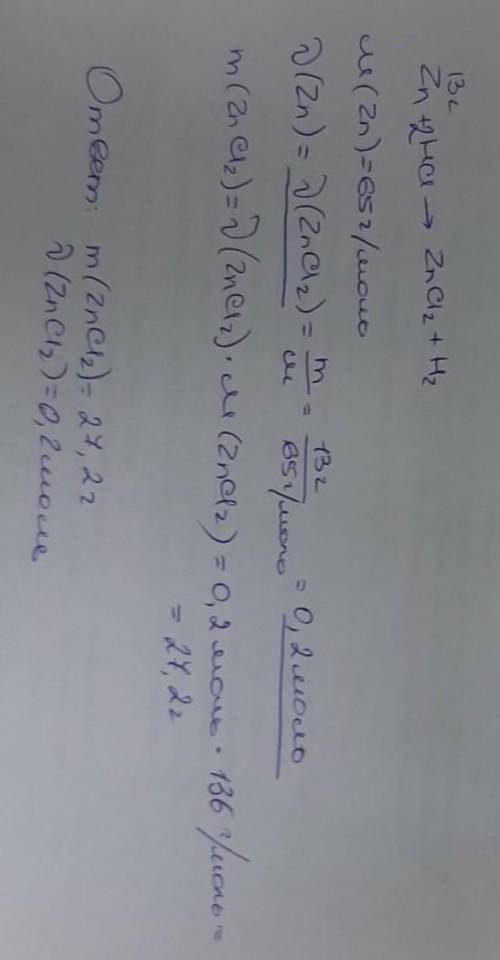 13г
Zn + 2HCl → ZnCl₂ + H₂
M(Zn) = 65г/моль
ν(Zn) = ν(ZnCl₂) = m/M = 13г/65г/моль = 0,2моль
m(ZnCl₂) = ν(ZnCl₂) · M(ZnCl₂) = 0,2моль · 136г/моль =
= 27,2г
Ответ: m(ZnCl₂) = 27,2г
ν(ZnCl₂) = 0,2моль